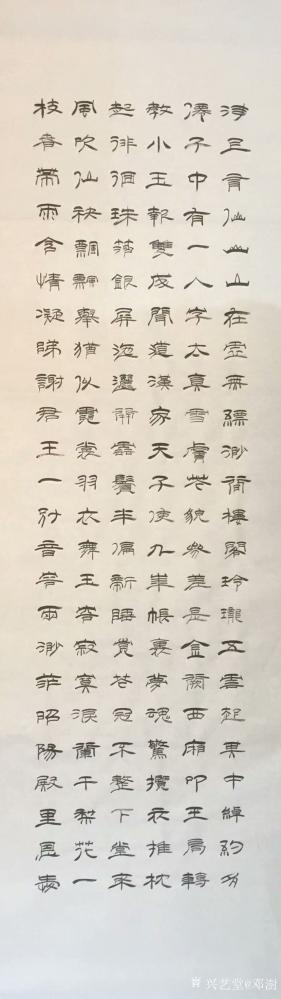 海上有仙山山在虛無縹渺間樓閣玲瓏五雲起其中綽約多
僊子中有一人字太真雪膚花貌參差是金闕西廂叩玉扃轉
教小玉報雙成聞道漢家天子使九華帳裏夢魂驚攬衣推枕
起徘徊珠箔銀屏迤邐開雲鬢半偏新睡覺花冠不整下堂來
風吹仙袂飄飄舉猶似霓裳羽衣舞玉容寂寞淚闌干梨花一
枝春帶雨含情凝睇謝君王一別音容兩渺茫昭陽殿里恩愛
兴艺堂@邓澍